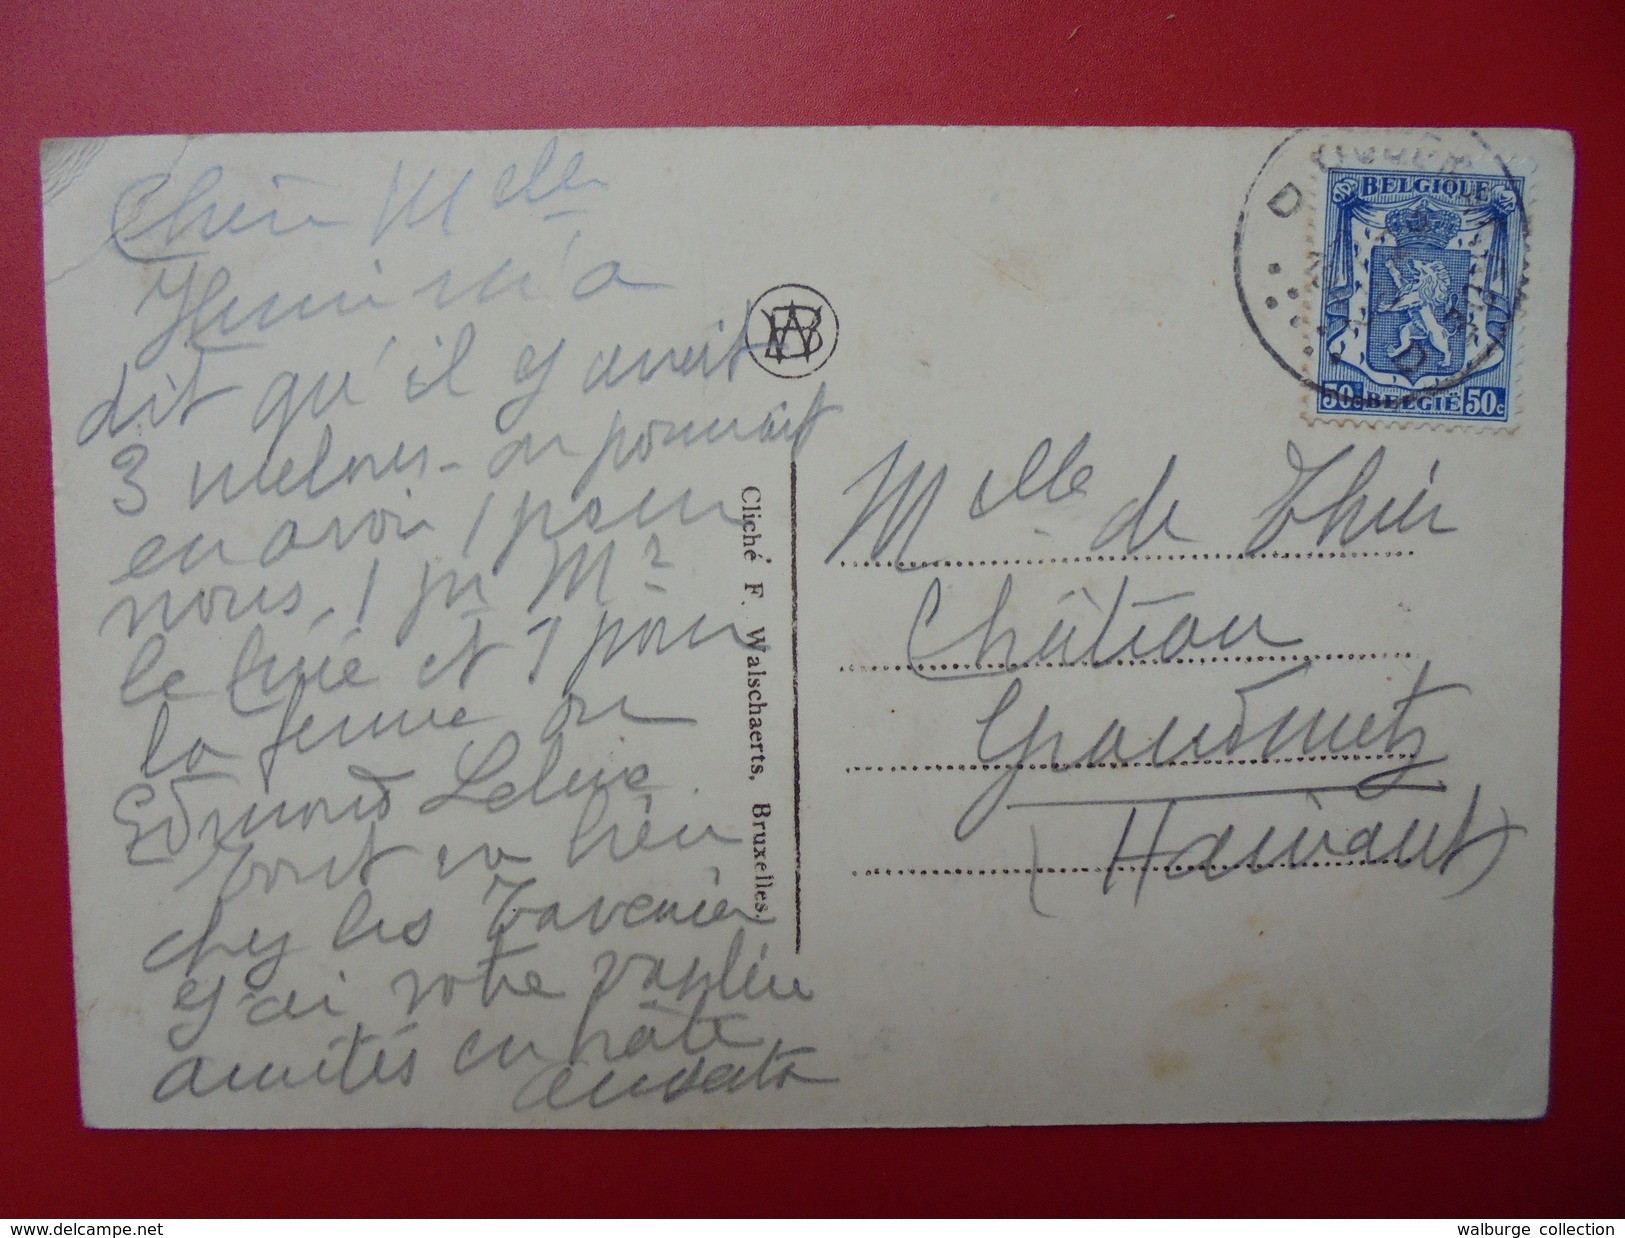 Chère Mlle
m'a
dit qu'il y avait
3 melons - on pourrait
en avoir 1 pour
nous, 1 pr Mr
le Curé et 1 pour
la femme ou
Edmond
tout va bien
chez les Tavenier
j'ai votre
amitiés en hâte
WB
Cliché F. Walschaerts, Bruxelles.
BELGIQUE
50c BELGIË 50c
D D
Mlle de Thier
Château
Grandmetz
(Hainaut)
www.delcampe.net
walburge collection